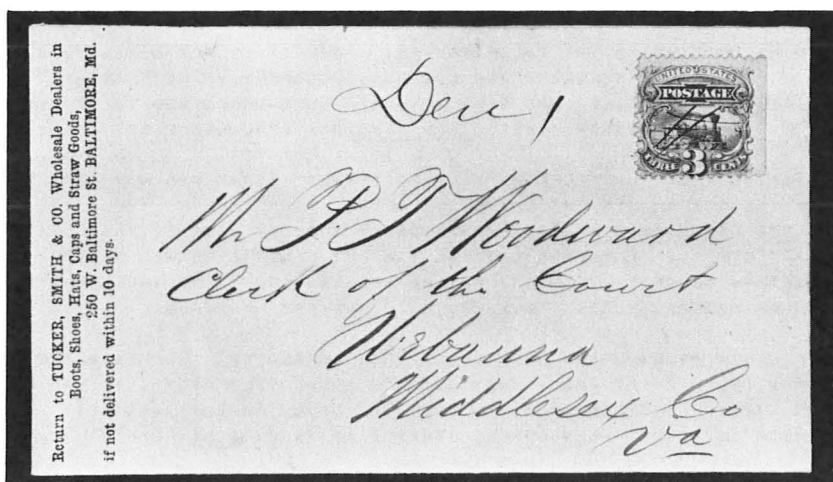 Return to TUCKER, SMITH & CO. Wholesale Dealers in
Boots, Shoes, Hats, Caps and Straw Goods,
250 W. Baltimore St. BALTIMORE, Md.
if not delivered within 10 days.
UNITED STATES
POSTAGE
3
CENTS
Mr P T Woodward
Clerk of the Court
Urbanna
Middlesex Co
Va